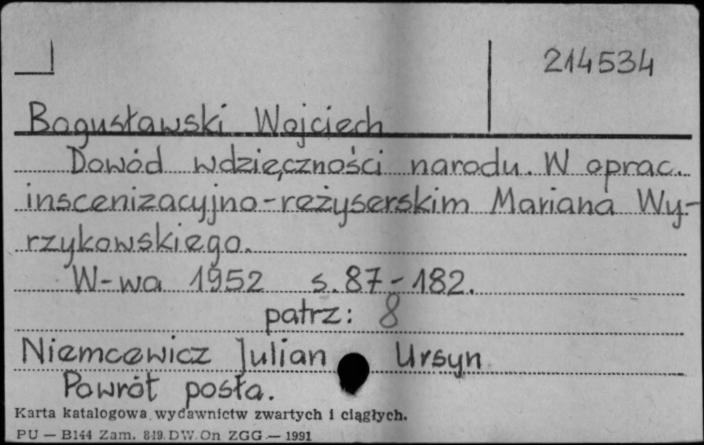 214534
Bogusławski Wojciech
Dowód wdzięczności narodu. W oprac.
inscenizacyjno-reżyserskim Mariana Wy-
rzykowskiego.
W-wa 1952 s. 87-182.
patrz: 8
Niemcewicz Julian Ursyn
Powrót posła.
Karta katalogowa wydawnictw zwartych i ciągłych.
PU — B144 Zam. 849. DW. On ZGG — 1991